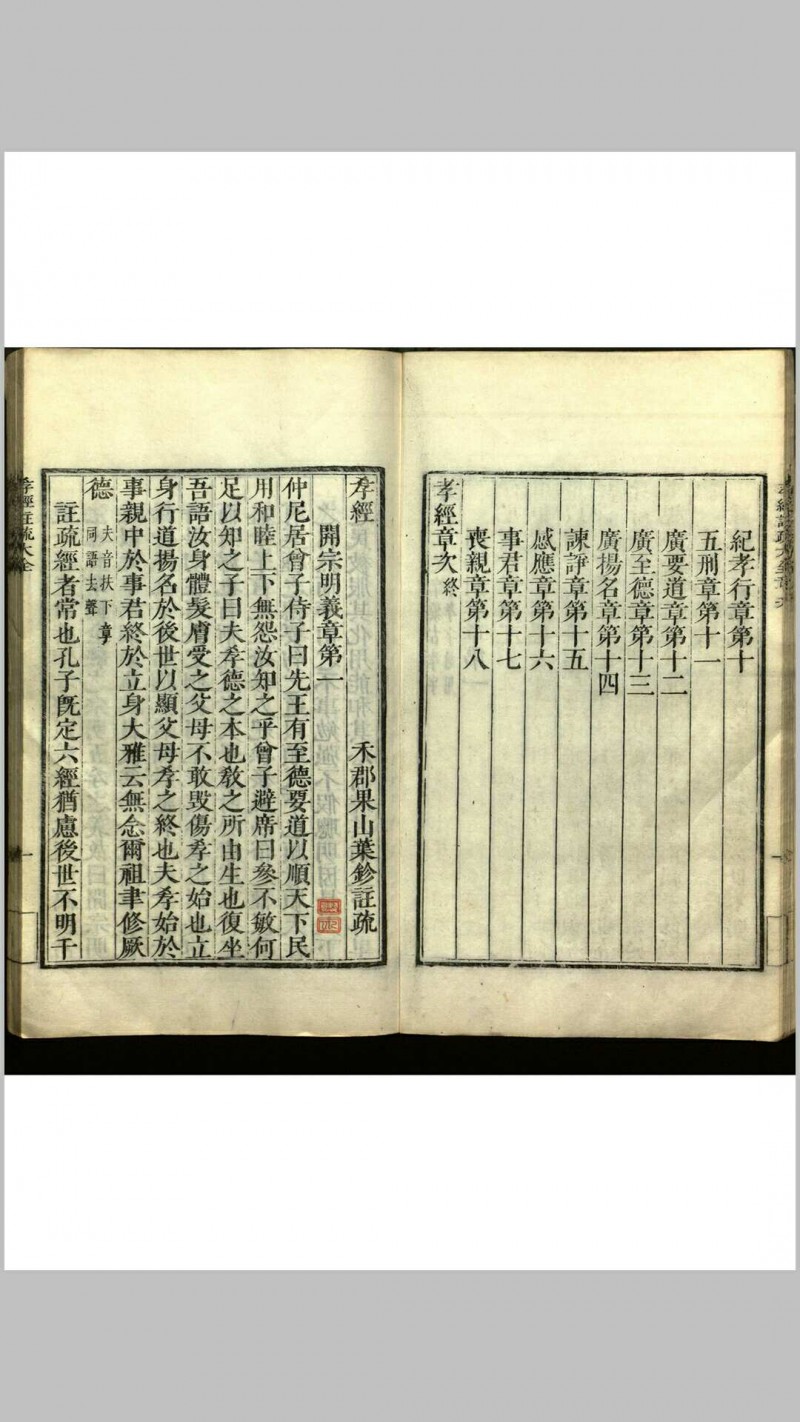 紀孝行章第十
五刑章第十一
廣要道章第十二
廣至德章第十三
廣揚名章第十四
諫諍章第十五
感應章第十六
事君章第十七
喪親章第十八
孝經章次終
孝經 禾郡果山葉鉁註疏
開宗明義章第一
仲尼居曾子侍子曰先王有至德要道以順天下民
用和睦上下無怨汝知之乎曾子避席曰參不敏何
足以知之子曰夫孝德之本也教之所由生也復坐
吾語汝身體髮膚受之父母不敢毀傷孝之始也立
身行道揚名於後世以顯父母孝之終也夫孝始於
事親中於事君終於立身大雅云無念爾祖聿修厥
德 夫音扶下章
同語去聲
註疏經者常也孔子既定六經猶慮後世不明干
孝經註疏大全
一